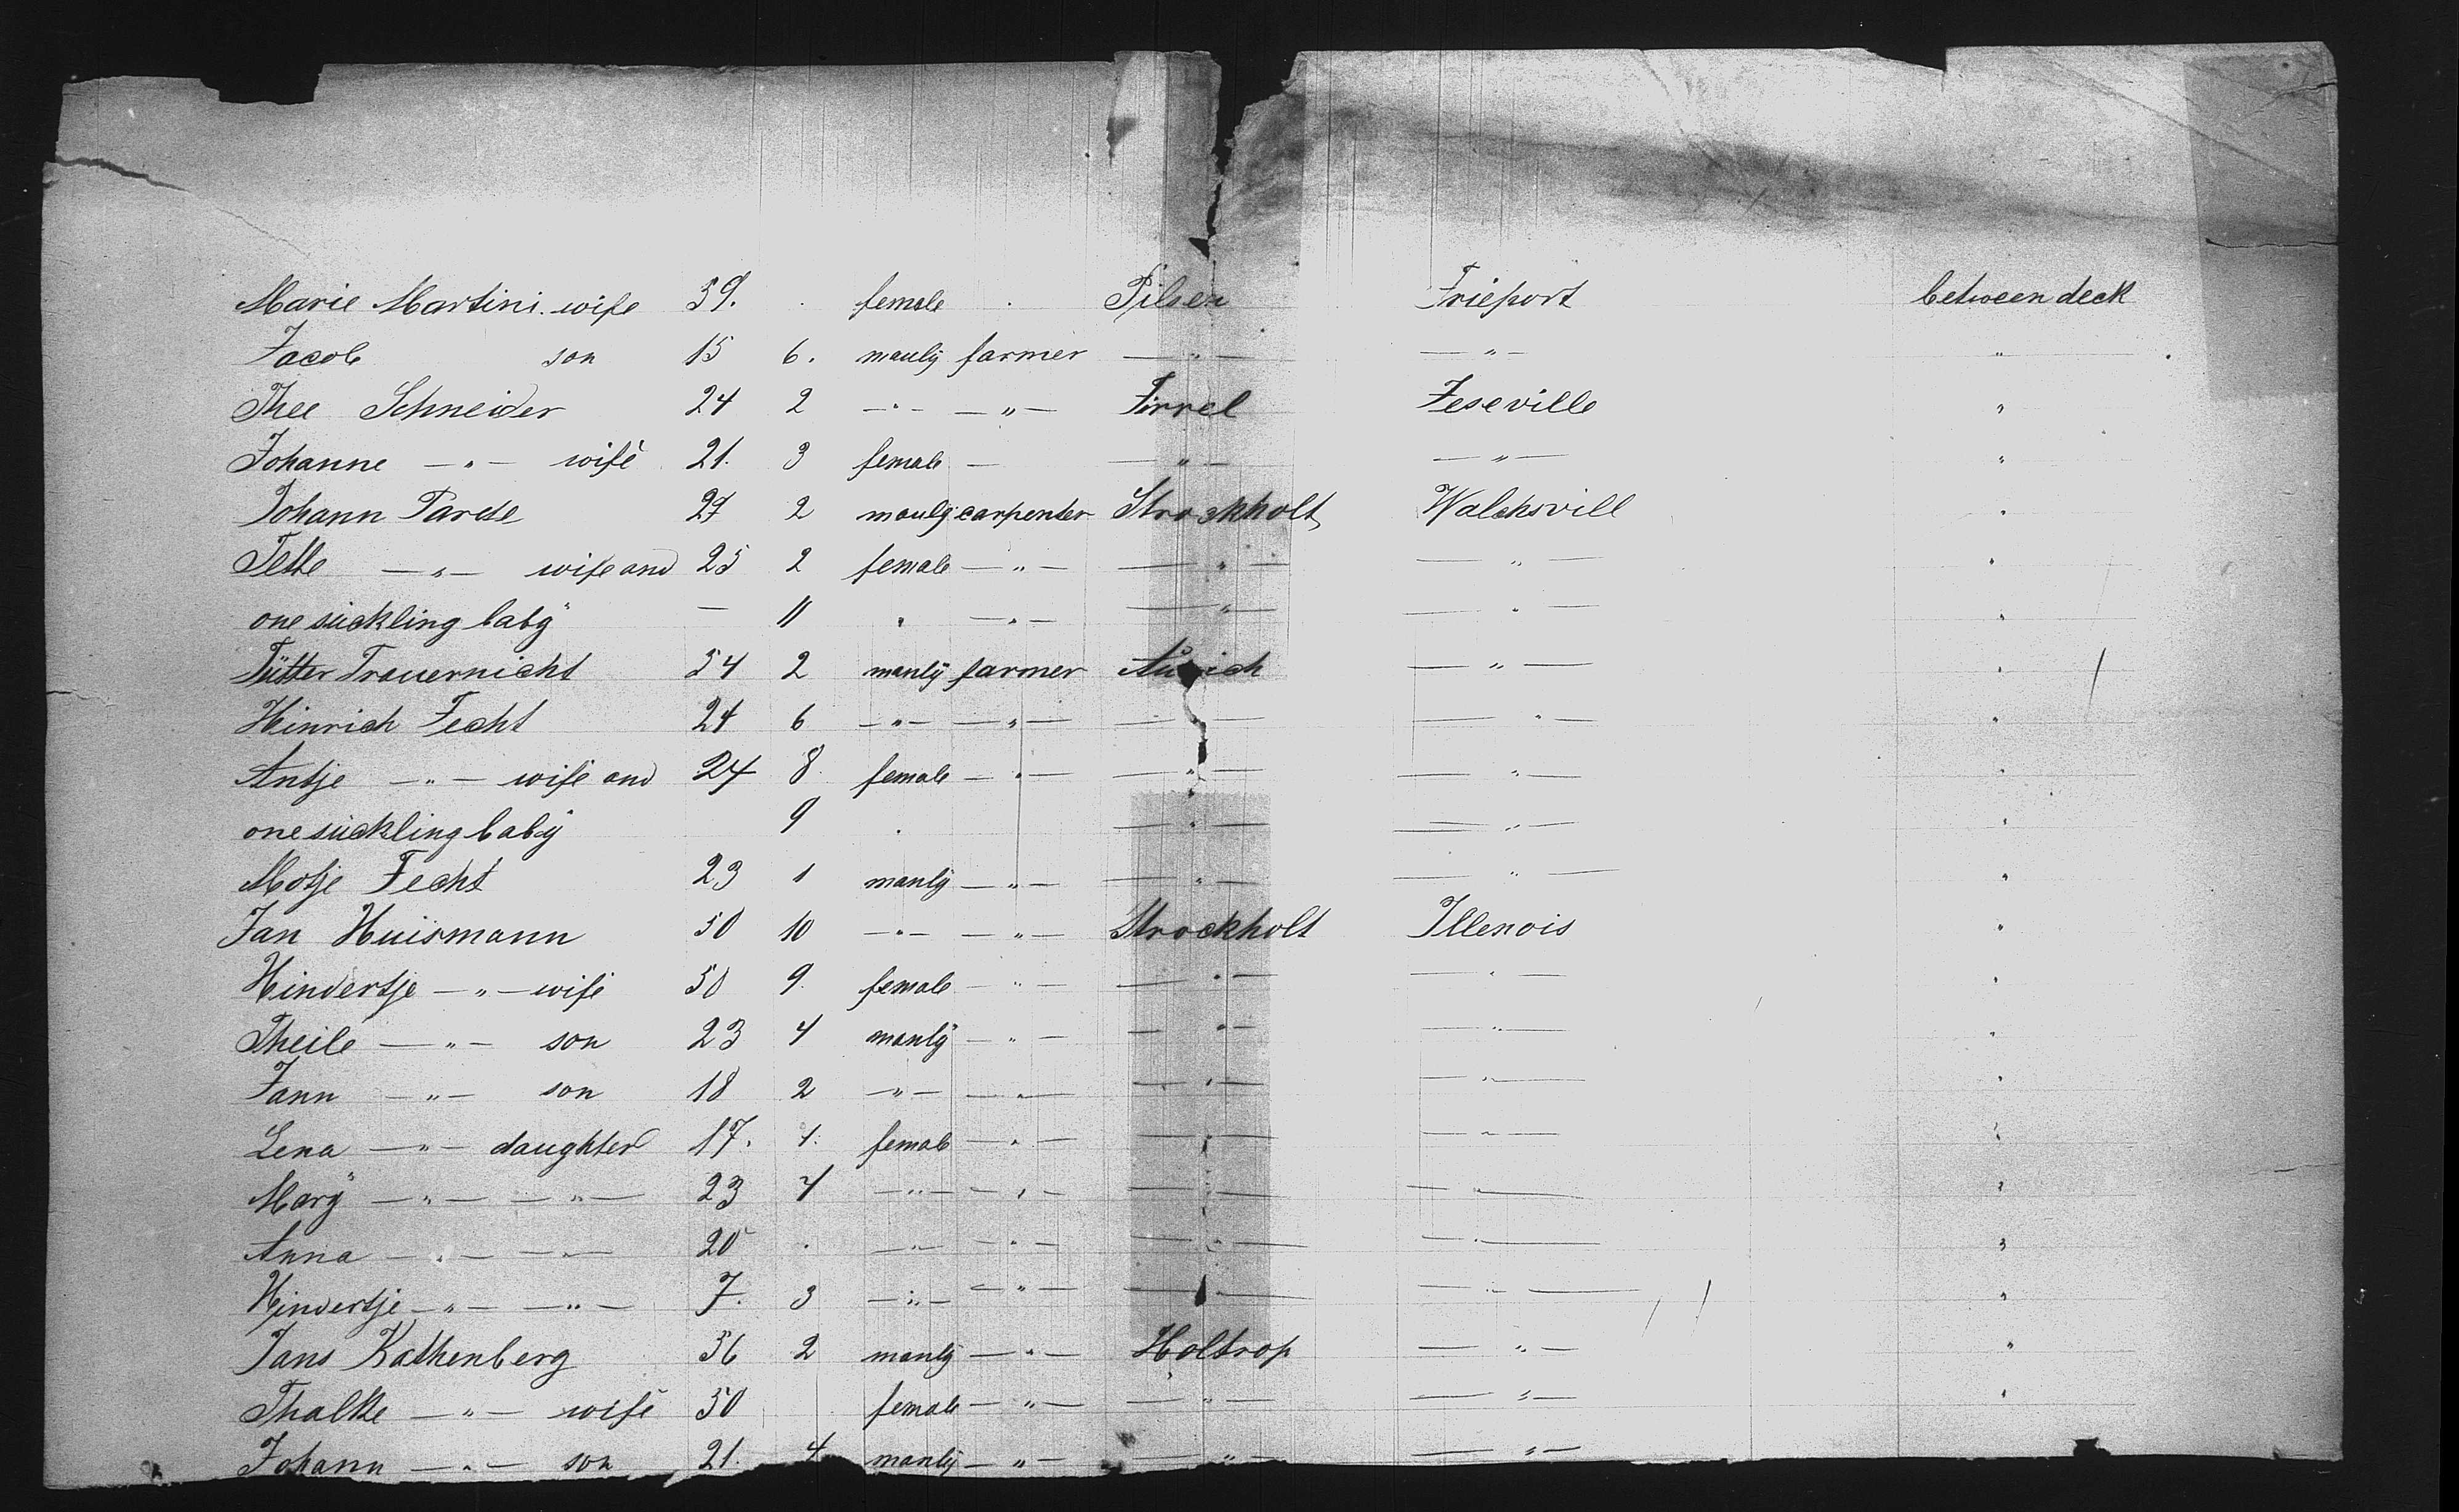 Marie Martini wife 59. female Pilsen Frieport between deck
Jacob son 15 6. manly farmer — " — — " — "
Thee Schneider 24 2 — " — — " — Firrel Zeseville "
Johanne — " — wife 21. 3 female — — " — — " — "
Johann Parde 27 2 manly carpenter Strockholt Walchsvill "
Tette — " — wife and 25 2 female — " — — " — — " — "
one sückling baby — 11 " — " — — " — — " — "
Tütter Trauernicht 54 2 manly farmer Aurich — " — "
Hinrich Fecht 24 6 — " — — " — — — — " — "
Antje — " — wife and 24 8 female — " — — " — — " — "
one sückling baby 9 . — " — — " — "
Motje Fecht 23 1 manly — " — — " — — " — "
Jan Huismann 50 10 — " — — " — Strockholt Illenois "
Hindertje — " — wife 50 9. female — " — — " — — " — "
Theile — " — son 23 4 manly — " — — " — — " — "
Jann — " — son 18 2 — " — — " — — " — — " — "
Lena — " — daughter 17. 4. female — " — — " — — " — "
Mary — " — — " — 23 4 — " — — " — — " — — " — "
Anna — " — — " — 20 . — " — — " — — " — — " — "
Hindertje — " — — " — 7. 3 — " — — " — — " — — " — "
Jans Kathenberg 56 2 manly — " — Holtrop — " — "
Thalke — " — wife 50 female — " — — " — — " — "
Johann — " — son 21. 4 manly — " — — " — — " —